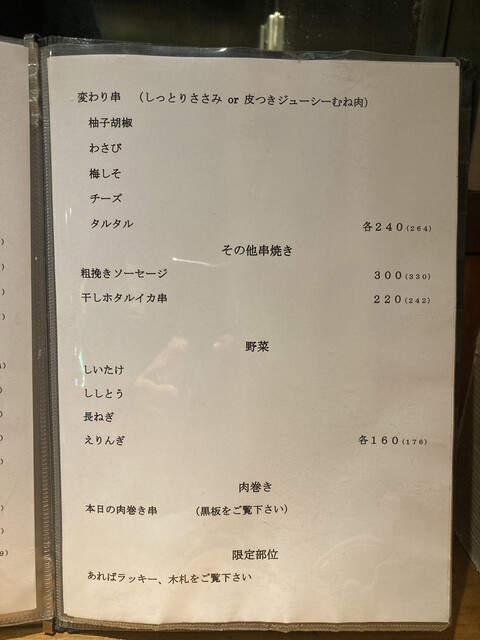 変わり串 (しっとりささみ or 皮つきジューシーむね肉)
柚子胡椒
わさび
梅しそ
チーズ
タルタル 各240(264)
その他串焼き
粗挽きソーセージ 300(330)
干しホタルイカ串 220(242)
野菜
しいたけ
ししとう
長ねぎ
えりんぎ 各160(176)
肉巻き
本日の肉巻き串 (黒板をご覧下さい)
限定部位
あればラッキー、木札をご覧下さい